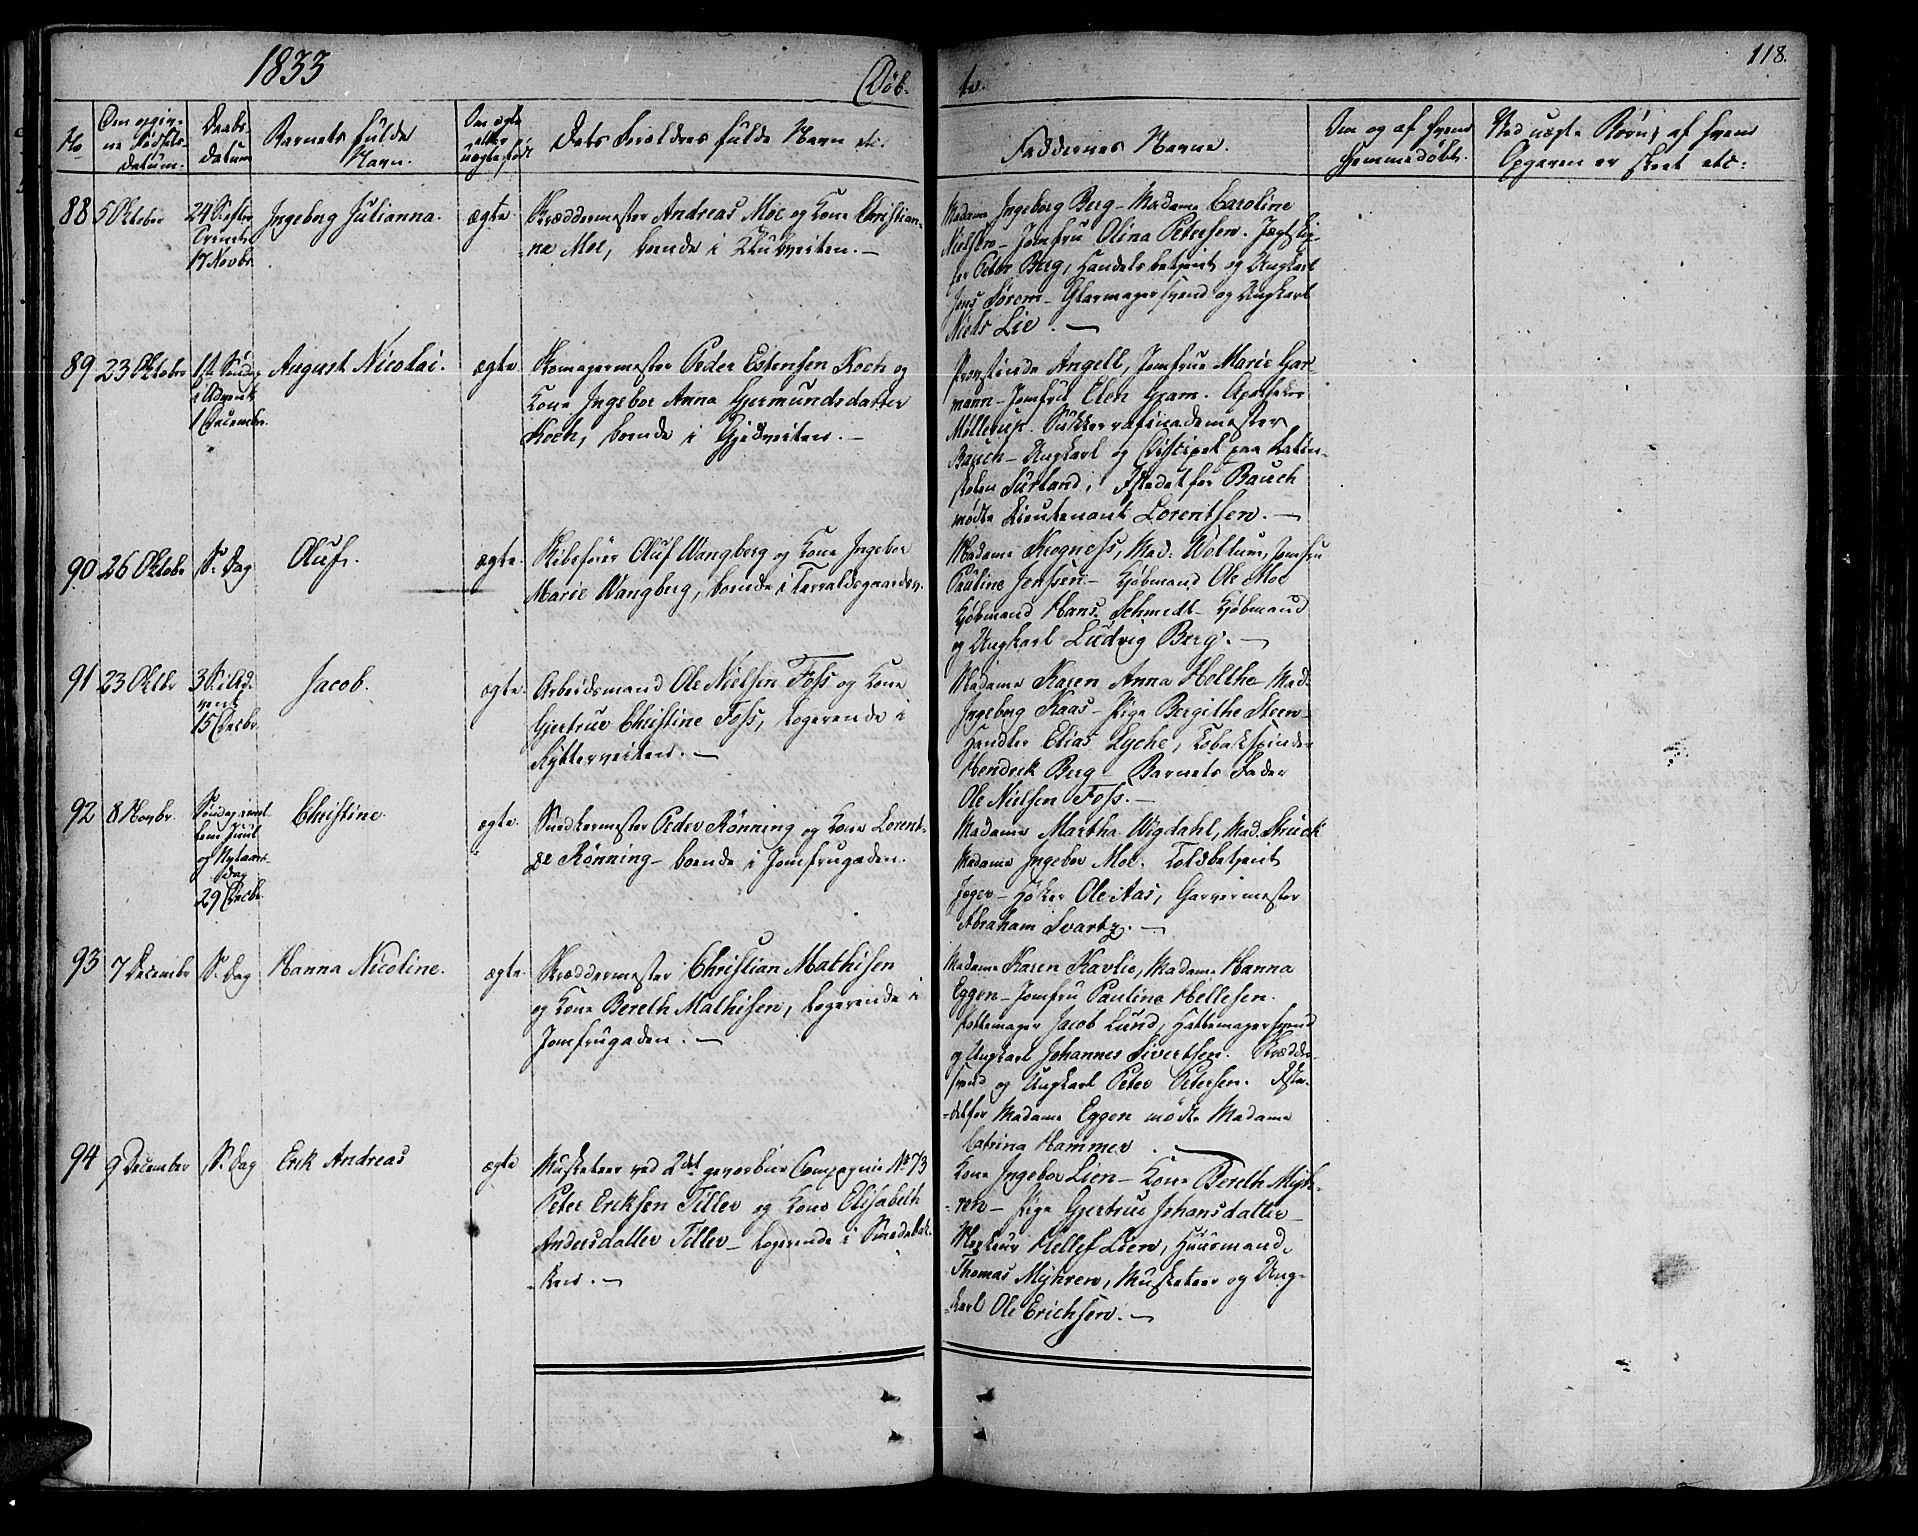 1833
Døb-
te.
118.
No
Den opgiv-
ne Fødsels-
datum.
Daabs-
datum
Barnets fulde
Navn.
Om ægte
eller
uægte født
Dets Forældres fulde Navn etc.
Faddernes Navne.
Om og af hvem
hjemmedøbt.
Ved uægte Børn, af hvem
Opgaven er skeet etc:
88
5 Oktober
24 S. efter
Trinit.
17 Novbr
Ingeborg Julianna.
ægte
Skræddermester Andreas Moe og Kone Christian-
ne Moe, boende i
Madame Ingeborg Berg - Madame Caroline
Nielsen - Jomfru Olina Petersen.
Peter Berg, Handelsbetjent og Ungkarl
Jens Sørem - Glarmagersvend og Ungkarl
Niels Lie. -
89
23 Oktober
1ste Søndag
i Advent
1 December.
August Nicolai.
ægte
Skomagermester Peder Estensen Koch og
Kone Ingebor Anna Gjermundsdatter
Koch, boende i Gjedveiten. -
Provstinde Angell, Jomfrue Marie Gar-
mann - Jomfru Elen Gram. Apotheker
Møllerup. Sukkerrafinademester
Bauch - Ungkarl og Discipel paa Latin-
skolen Surland. Istedetfor Bauch
mødte Lieutenant Lorentsen. -
90
26 Oktobr
S. Dag
Oluf.
ægte.
Oluf Wangberg og Kone Ingebor
Marie Wangberg, boende i Tarraldsgaardsv.
Madame Krogness, Mad: Wollum, Jomfru
Pauline Jenssen - Kjøbmand Ole Moe
Kjøbmand Hans Schmedt - Kjøbmand
og Ungkarl Ludvig Berg. -
91
23 Oktbr
3 S. i Ad-
vent
15 Decbr
Jacob.
ægte.
Arbeidsmand Ole Nielsen Foss og Kone
Gjertrue Christine Foss, Logerende i
Rytterveiten. -
Madame Karen Anna Holthe - Mad:
Ingeborg Kaas - Pige Bergithe Steen -
Handler Elias Lyche, Tobakspinder
Hendrik Berg - Barnets Fader
Ole Nielsen Foss. -
92
8 Novbr.
Søndag imel-
lem Juul
og Nytaars-
dag
29 Decbr
Christine
ægte.
Snedkermester Peder Rønning og Kone Lorent-
ze Rønning - boende i Jomfrugaden.
Madame Martha Wigdahl, Mad. Struck
Madame Ingebor Moe. Toldbetjent
Jæger - Høker Ole Aas, Garvermester
Abraham Svartz. -
93
7 Decembr
S. Dag
Hanna Nicoline.
ægte.
Skræddermester Christian Mathisen
og Kone Bereth Mathisen, Logerende i
Jomfrugaden. -
Madame Karen Kavlie, Madame Hanna
Eggen - Jomfru Paulina Hellesen.
Pottemager Jacob Lund, Hattemagersvend
og Ungkarl Johannes Sivertsen. Skrædder-
svend og Ungkarl Peter Petersen. Iste-
detfor Madame Eggen mødte Madame
Catrina Hammer. -
94
9 December
S. Dag
Erik Andreas
ægte
Musketeer ved 2det gevorbne Compagnie No 73
Peter Eriksen Tiller og Kone Elisabeth
Andersdatter Tiller - Logerende i Smedebak-
ken. -
Kone Ingebor Lien - Kone Bereth Myh-
ren - Pige Gjertrue Johansdatter -
Hellef Lien, Huusmand
Thomas Myhren, Musketeer og Ung-
karl Ole Erichsen. -